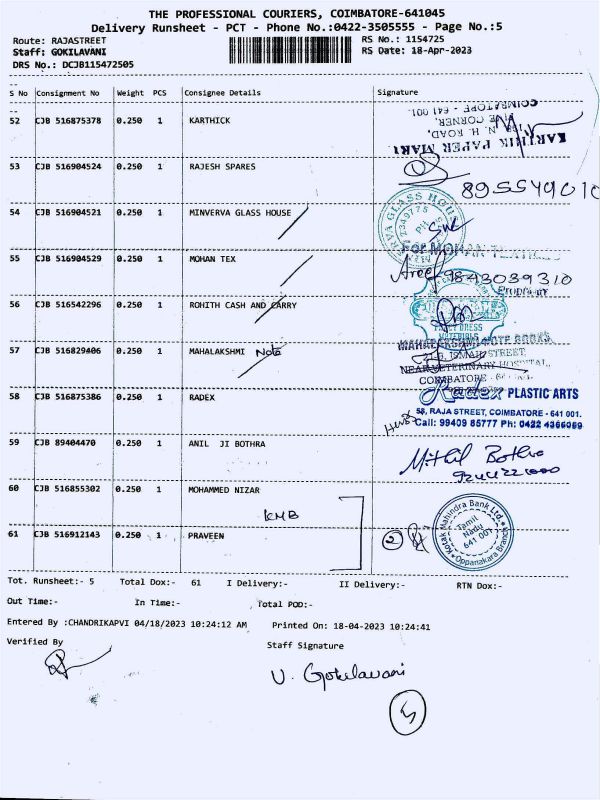 THE PROFESSIONAL COURIERS, COIMBATORE-641045
Delivery Runsheet - PCT - Phone No.:0422-3505555 - Page No.:5
Route: RAJASTREET
RS No.: 1154725
Staff: GOKILAVANI
RS Date: 18-Apr-2023
DRS No.: DCJB115472505
S No Consignment No Weight PCS Consignee Details Signature
52 CJB 516875378 0.250 1 KARTHICK
COIMBATORE - 641 001.
N. H. ROAD,
KARTHIK PAPER MART
53 CJB 516904524 0.250 1 RAJESH SPARES
54 CJB 516904521 0.250 1 MINVERVA GLASS HOUSE
For MOHAN TEXTILES
55 CJB 516904529 0.250 1 MOHAN TEX
9843039310
Proprietor
56 CJB 516542296 0.250 1 ROHITH CASH AND CARRY
FANCY DRESS
MATERIALS
MAHALAKSHMI NOTE BOOKS
57 CJB 516829406 0.250 1 MAHALAKSHMI Note
STREET,
NEAR VETERINARY HOSPITAL,
COIMBATORE
58 CJB 516875386 0.250 1 RADEX
Radex PLASTIC ARTS
58, RAJA STREET, COIMBATORE - 641 001.
Call: 99409 85777 Ph: 0422 4366069
59 CJB 89404470 0.250 1 ANIL JI BOTHRA
Mithil Bothra
60 CJB 516855302 0.250 1 MOHAMMED NIZAR
KMB
61 CJB 516912143 0.250 1 PRAVEEN
2
Kotak Mahindra Bank Ltd.
Tamil
Nadu
641 001
Oppanakara Branch
Tot. Runsheet:- 5 Total Dox:- 61 I Delivery:- II Delivery:- RTN Dox:-
Out Time:- In Time:- Total POD:-
Entered By :CHANDRIKAPVI 04/18/2023 10:24:12 AM Printed On: 18-04-2023 10:24:41
Verified By Staff Signature
V. Gokilavani
5